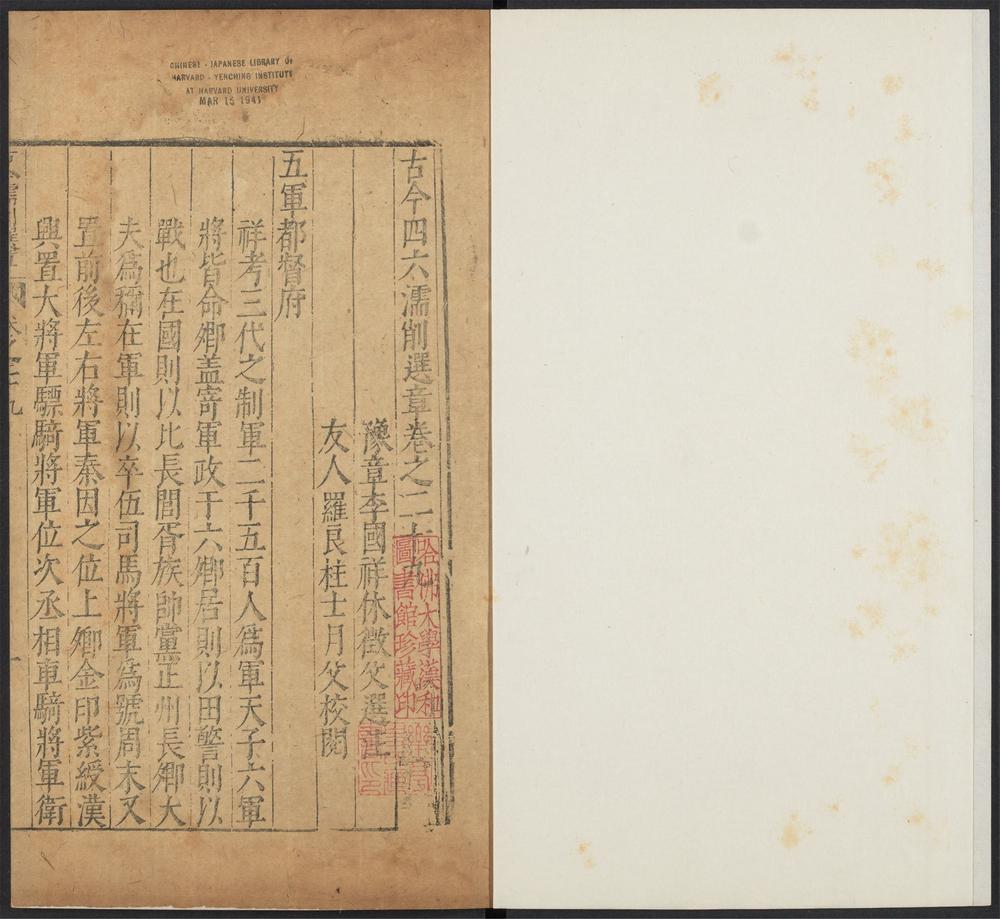 CHINESE - JAPANESE LIBRARY OF
HARVARD - YENCHING INSTITUTE
AT HARVARD UNIVERSITY
MAR 15 1941
古今四六濡削選章卷之二十九
豫章李國祥休徵父選
友人羅良柱士月父校閱
五軍都督府
祥考三代之制軍二千五百人爲軍天子六軍
將皆命卿盖寄軍政于六卿居則以田警則以
戰也在國則以比長閭胥族帥黨正州長卿大
夫爲稱在軍則以卒伍司馬將軍爲號周末又
置前後左右將軍秦因之位上卿金印紫綬漢
興置大將軍驃騎將軍位次丞相車騎將軍衛
卷之二十九
一
哈佛大學漢和
圖書館珍藏印